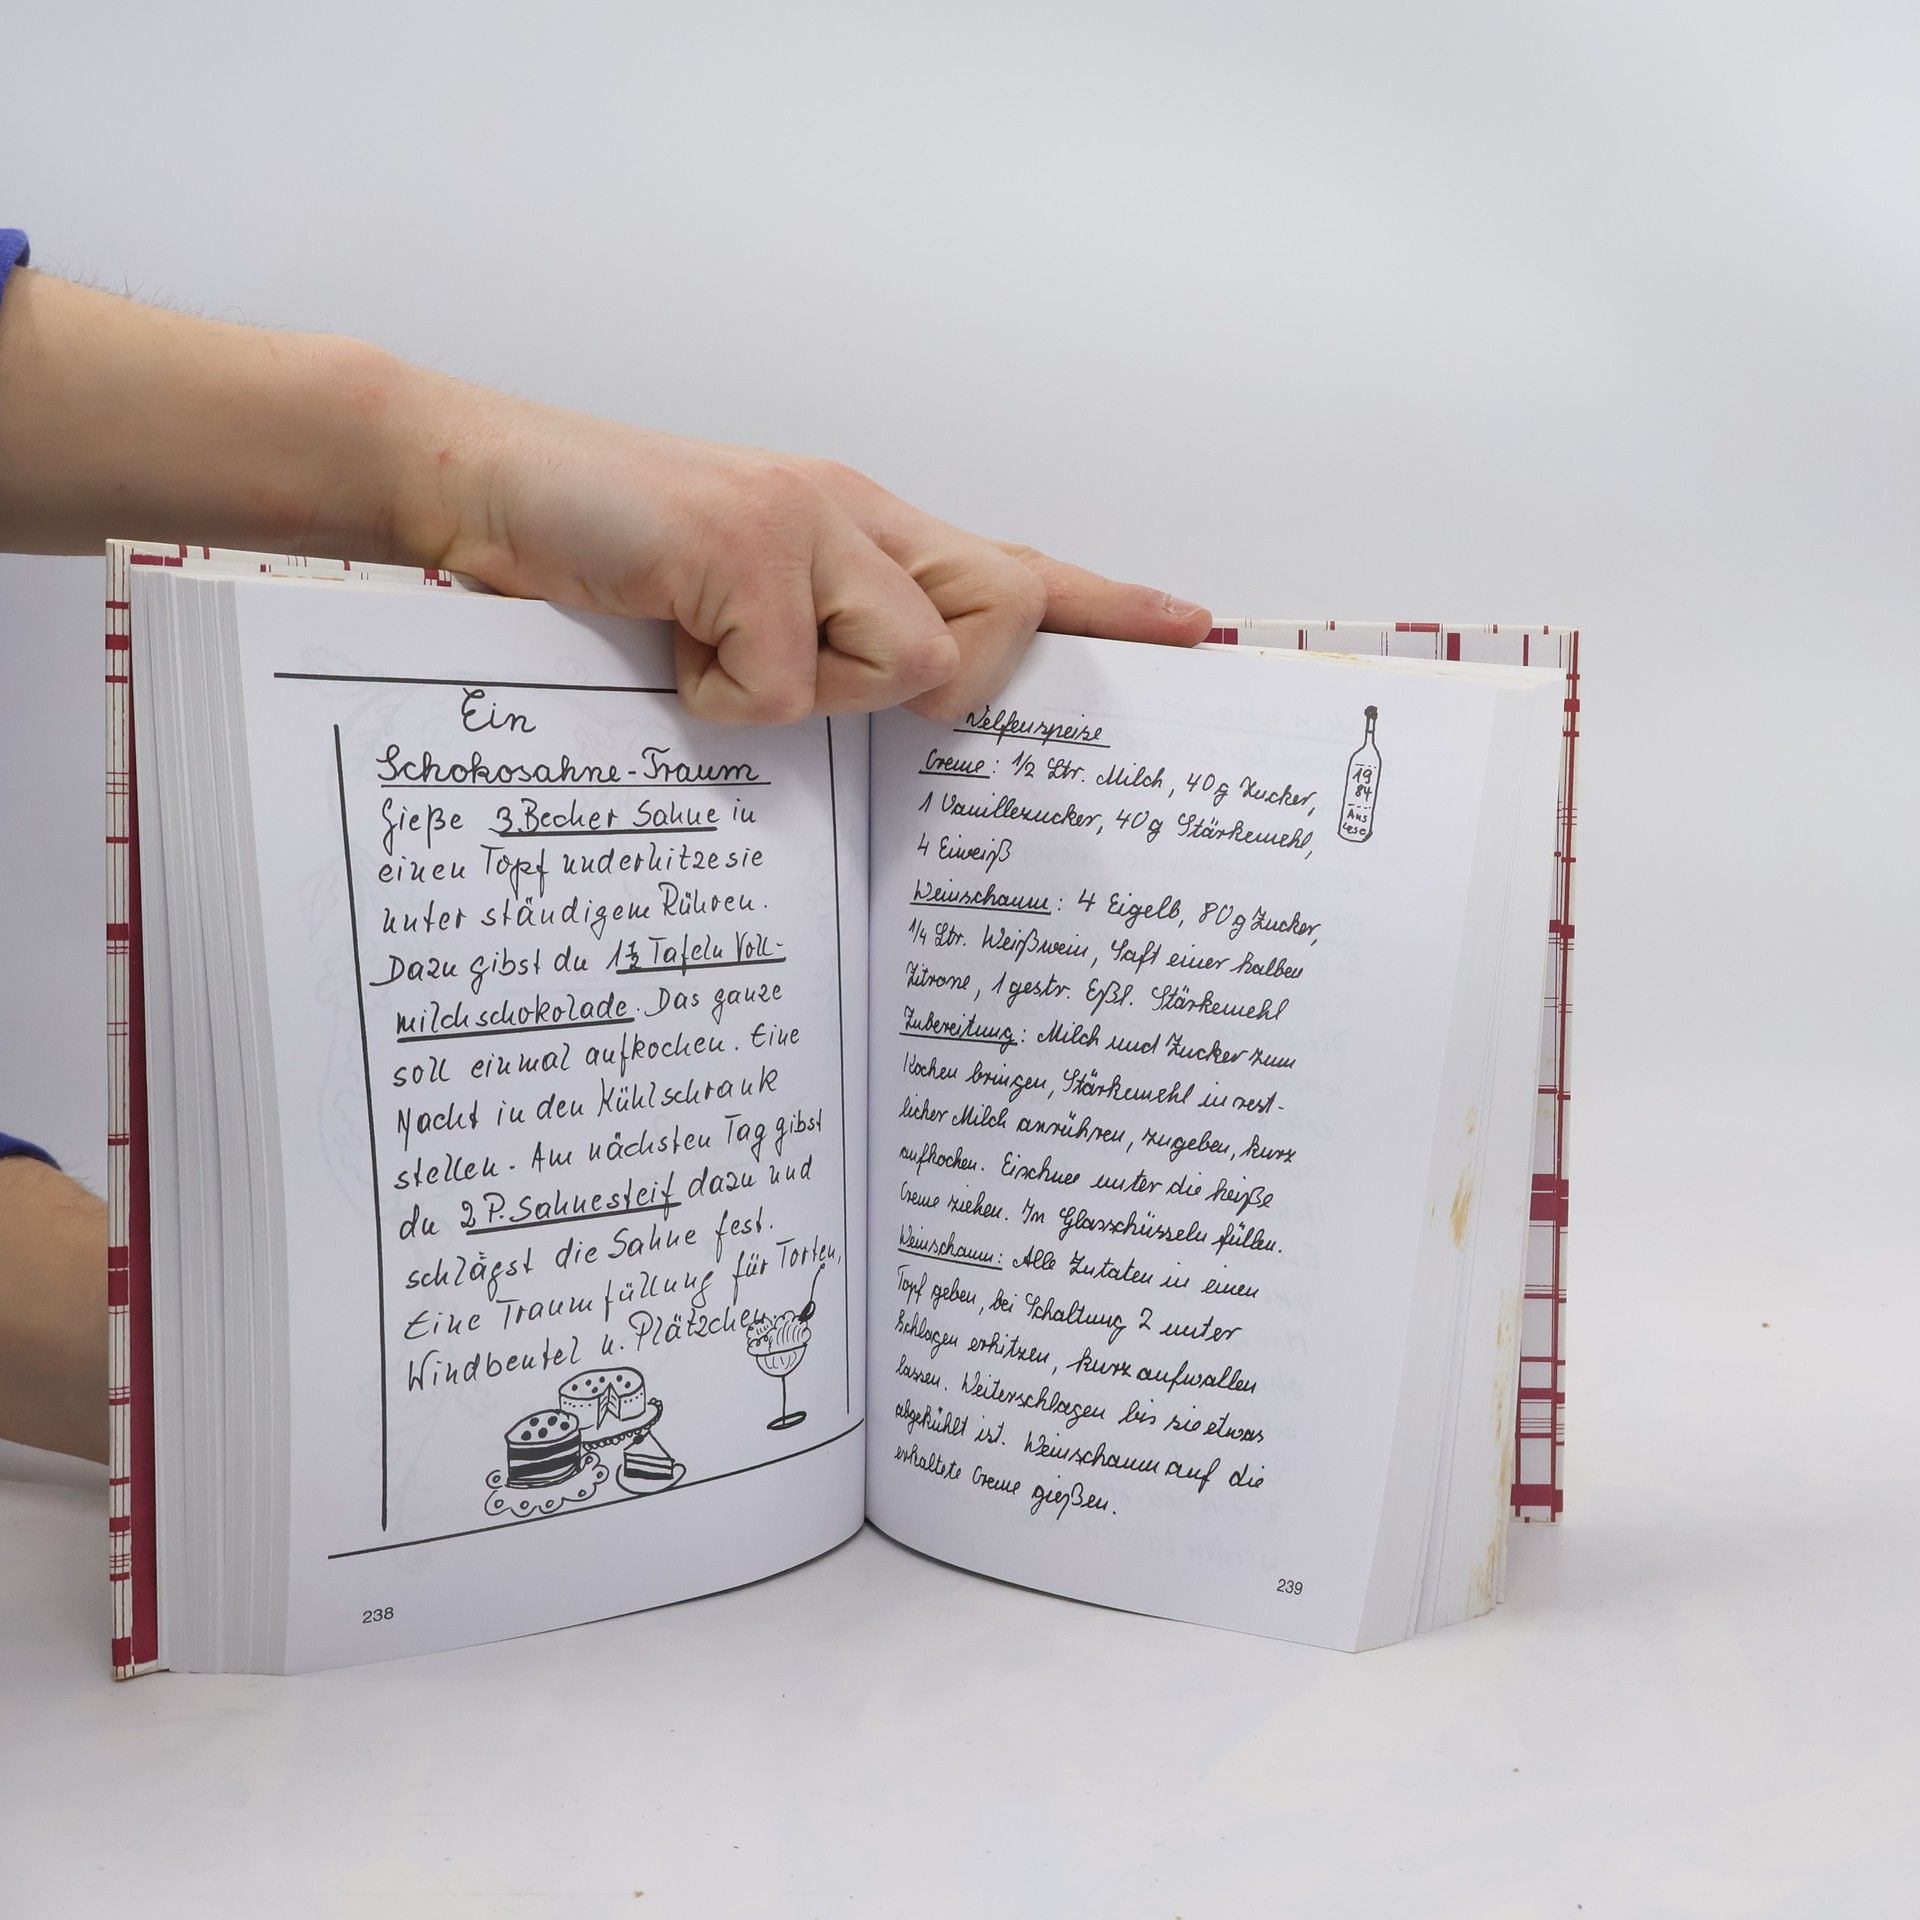 Ein
Schokosahne-Traum
Gieße 3 Becher Sahne in
einen Topf und erhitze sie
unter ständigem Rühren.
Dazu gibst du 1½ Tafeln Voll-
milchschokolade. Das ganze
soll einmal aufkochen. Eine
Nacht in den Kühlschrank
stellen. Am nächsten Tag gibst
du 2 P. Sahnesteif dazu und
schlägst die Sahne fest.
Eine Traumfüllung für Torten,
Windbeutel u. Plätzchen.
238
Welfenspeise
Creme: 1/2 Ltr. Milch, 40g Zucker,
1 Vanillezucker, 40g Stärkemehl,
4 Eiweiß
Weinschaum: 4 Eigelb, 80g Zucker,
1/4 Ltr. Weißwein, Saft einer halben
Zitrone, 1 gestr. Eßl. Stärkemehl
Zubereitung: Milch und Zucker zum
Kochen bringen, Stärkemehl in rest-
licher Milch anrühren, zugeben, kurz
aufkochen. Eischnee unter die heiße
Creme ziehen. In Glasschüsseln füllen.
Weinschaum: Alle Zutaten in einen
Topf geben, bei Schaltung 2 unter
Schlagen erhitzen, kurz aufwallen
lassen. Weiterschlagen bis sie etwas
abgekühlt ist. Weinschaum auf die
erkaltete Creme gießen.
19
84
Aus
lese
239